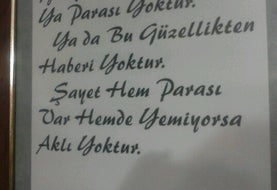 Ya Parası Yoktur.
Ya da Bu Güzellikten
Haberi Yoktur.
Şayet Hem Parası
Var Hemde Yemiyorsa
Aklı Yoktur.